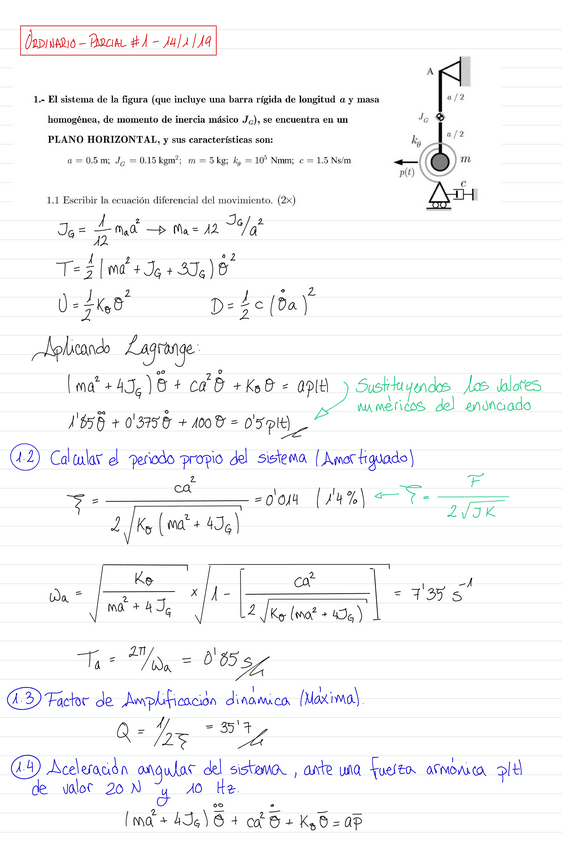 ORDINARIO – PARCIAL #1 – 14/1/19
1.- El sistema de la figura (que incluye una barra rígida de longitud a y masa
homogénea, de momento de inercia másico J_G), se encuentra en un
PLANO HORIZONTAL, y sus características son:
a = 0.5 m; J_G = 0.15 kgm²; m = 5 kg; k_θ = 10⁵ Nmm; c = 1.5 Ns/m
A
a / 2
J_G
a / 2
k_θ
m
p(t)
c
1.1 Escribir la ecuación diferencial del movimiento. (2×)
J_G = 1/12 m_a a² → m_a = 12 J_G/a²
T = 1/2 (ma² + J_G + 3J_G) θ̇²
U = 1/2 K_θ θ² D = 1/2 c (θ̇a)²
Aplicando Lagrange:
(ma² + 4J_G) θ̈ + ca² θ̇ + K_θ θ = ap(t)
Sustituyendos los valores
numéricos del enunciado
1'85 θ̈ + 0'375 θ̇ + 100 θ = 0'5 p(t)
1.2 Calcular el periodo propio del sistema (Amortiguado)
ξ = ca² / 2√(K_θ (ma² + 4J_G)) = 0'014 (1'4%) ← ξ = F / 2√(JK)
ω_a = √(K_θ / (ma² + 4J_G)) × √(1 - [ca² / 2√(K_θ (ma² + 4J_G))]) = 7'35 s⁻¹
T_a = 2π/ω_a = 0'85 s
1.3 Factor de Amplificación dinámica (Máxima).
Q = 1/2ξ = 35'7
1.4 Aceleración angular del sistema, ante una fuerza armónica p(t)
de valor 20 N y 10 Hz.
(ma² + 4J_G) θ̈̄ + ca² θ̇̄ + K_θ θ̄ = ap̄